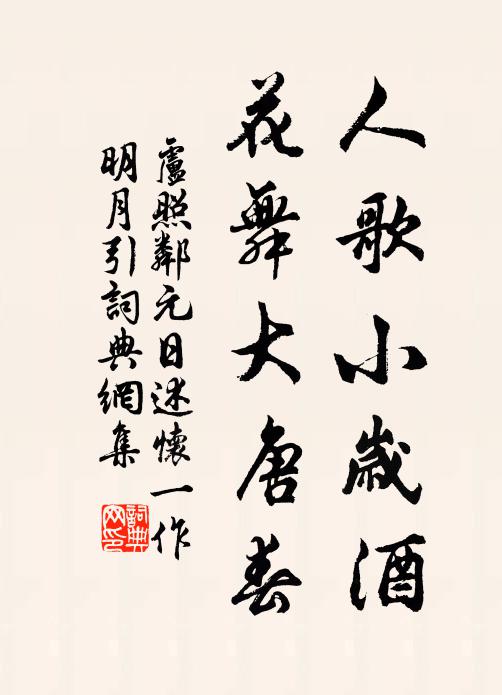 人歌小歲酒
花舞大唐春
盧照鄰元日述懷一作
明月引詞典網集
詞典
网印